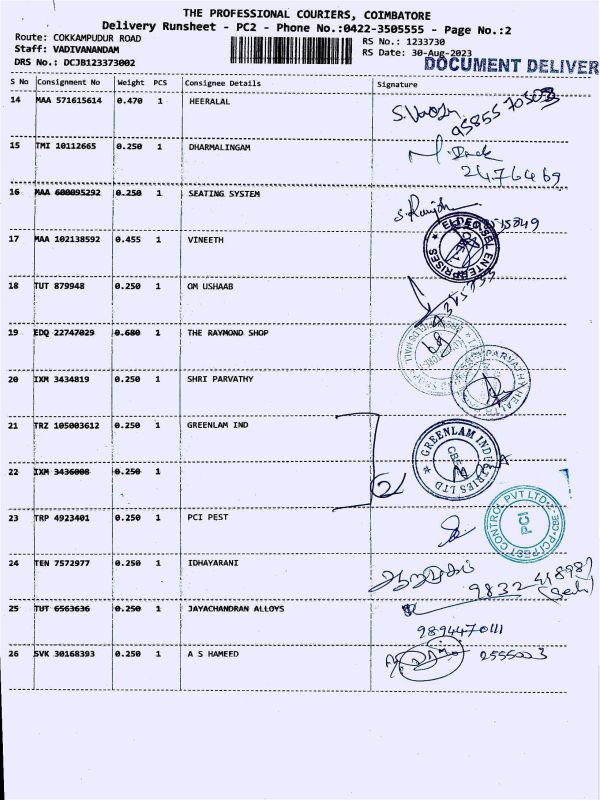 THE PROFESSIONAL COURIERS, COIMBATORE
Delivery Runsheet - PC2 - Phone No.:0422-3505555 - Page No.:2
Route: COKKAMPUDUR ROAD
RS No.: 1233730
Staff: VADIVANANDAM
RS Date: 30-Aug-2023
DRS No.: DCJB123373002
DOCUMENT DELIVER
S No Consignment No Weight PCS Consignee Details Signature
14 MAA 571615614 0.470 1 HEERALAL
15 TMI 10112665 0.250 1 DHARMALINGAM
2476469
16 MAA 600095292 0.250 1 SEATING SYSTEM
17 MAA 102138592 0.455 1 VINEETH
ENTERPRISES
18 TUT 879948 0.250 1 OM USHAAB
19 EDQ 22747029 0.680 1 THE RAYMOND SHOP
20 IXM 3434819 0.250 1 SHRI PARVATHY
PARVATHY HEALTH
21 TRZ 105003612 0.250 1 GREENLAM IND
GREENLAM INDUSTRIES LTD
CBE
22 IXM 3436008 0.250 1
2
23 TRP 4923401 0.250 1 PCI PEST
PCI PEST CONTROL PVT LTD CBE
PCI
24 TEN 7572977 0.250 1 IDHAYARANI
25 TUT 6563636 0.250 1 JAYACHANDRAN ALLOYS
9894470111
26 SVK 30168393 0.250 1 A S HAMEED
2555003